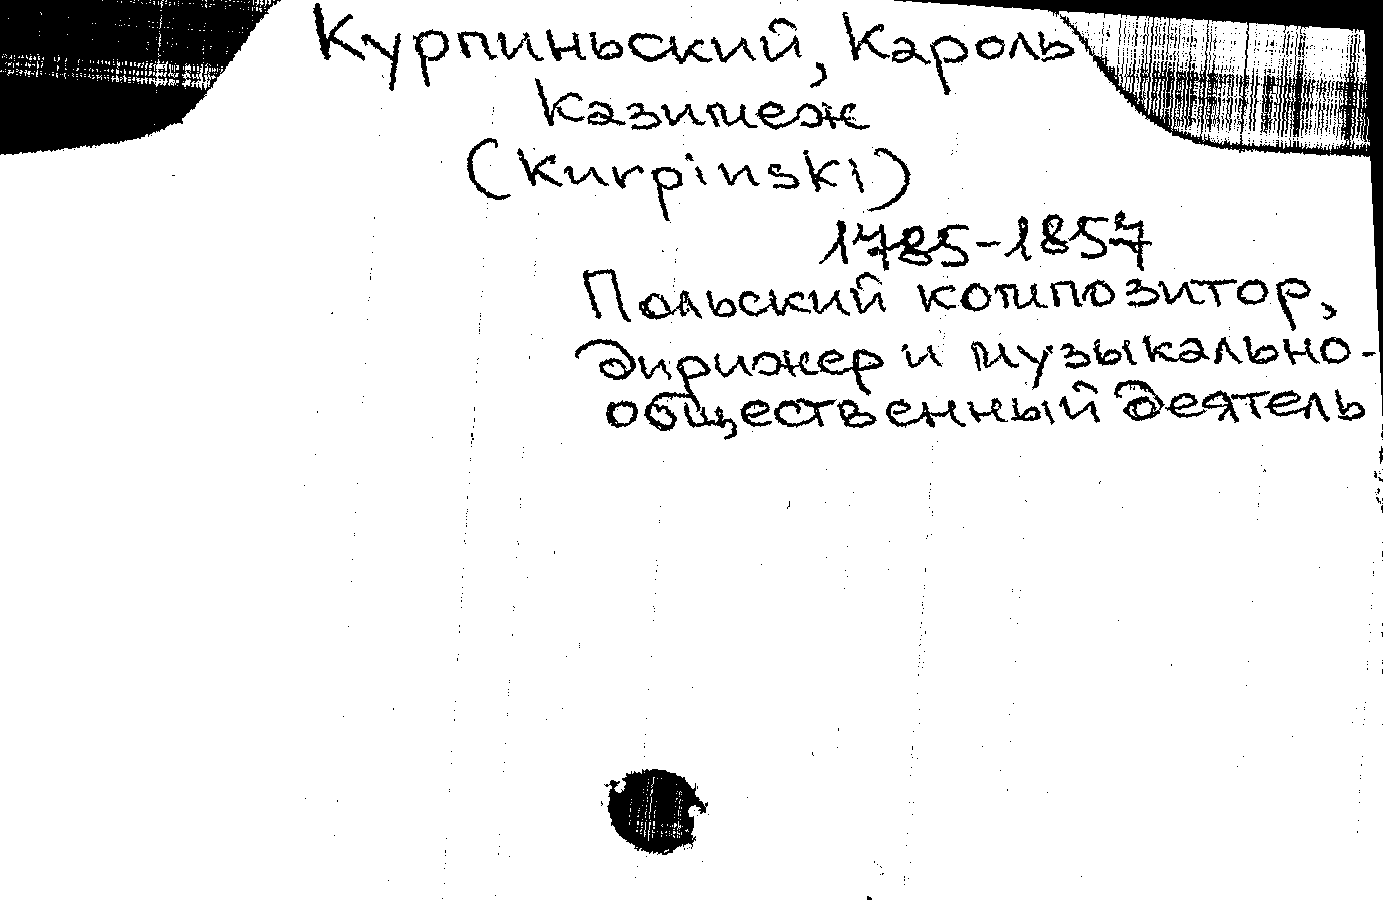 Курпиньский, Кароль
Казимеж
(Kurpinski)
1785-1857
Польский композитор,
дирижер и музыкально-
общественный деятель